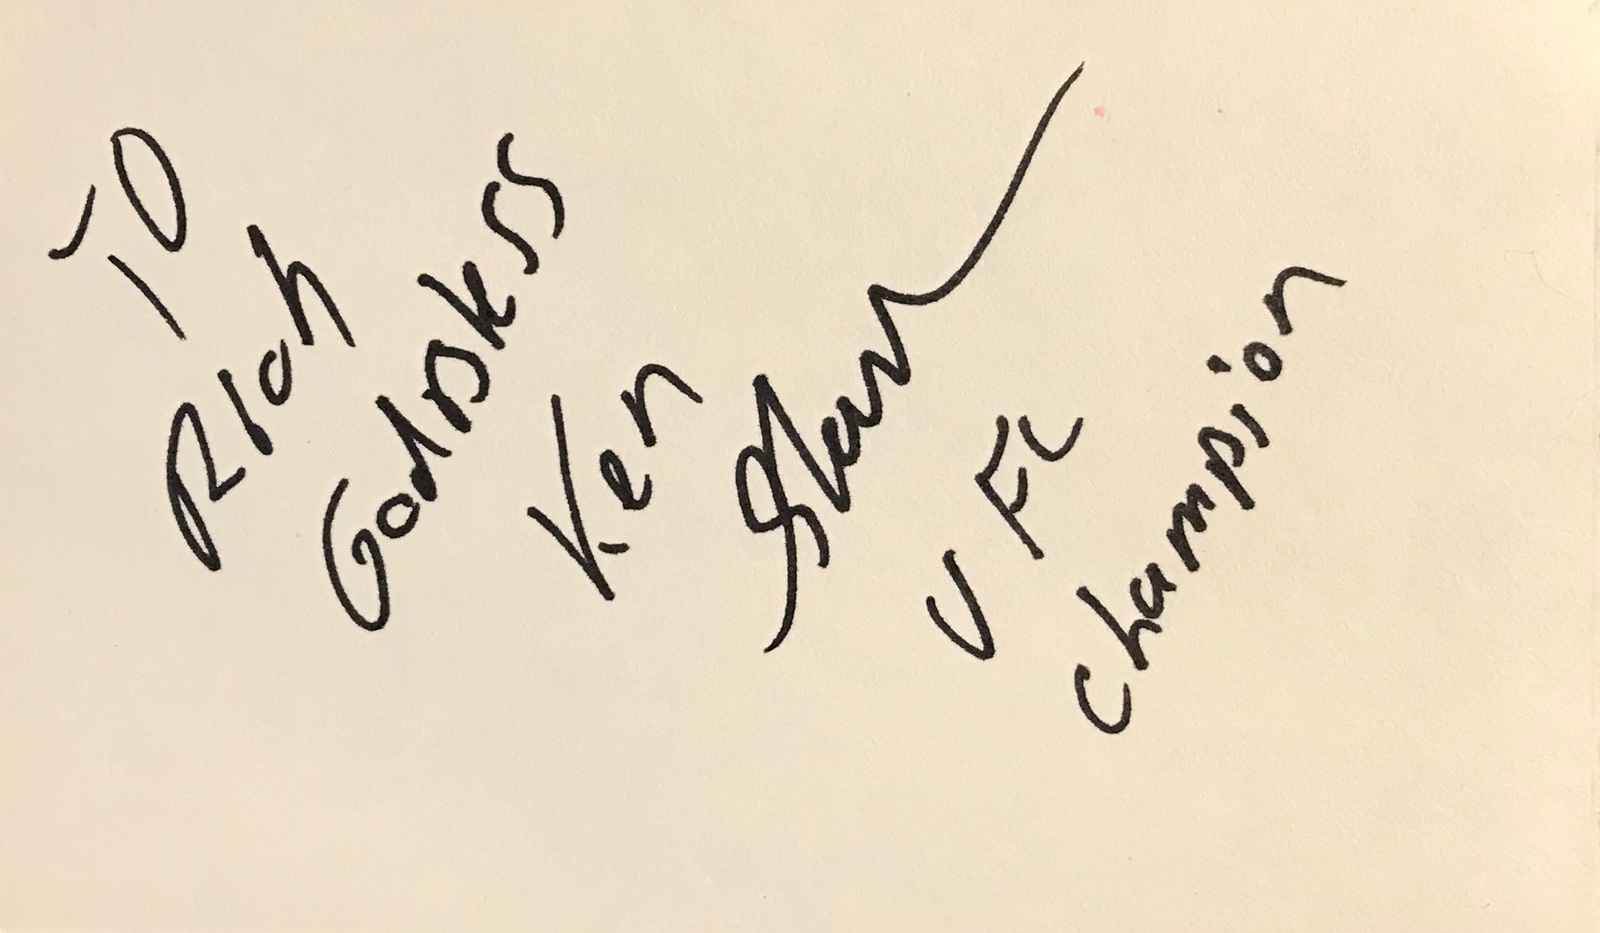 TO
Rich
God Bless
Ken
UFC
Champion